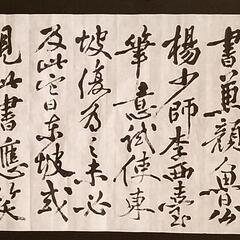 書兼顏魯公
楊少師李西臺
筆意試使東
坡復為之未必
及此它日東坡或
見此書應笑